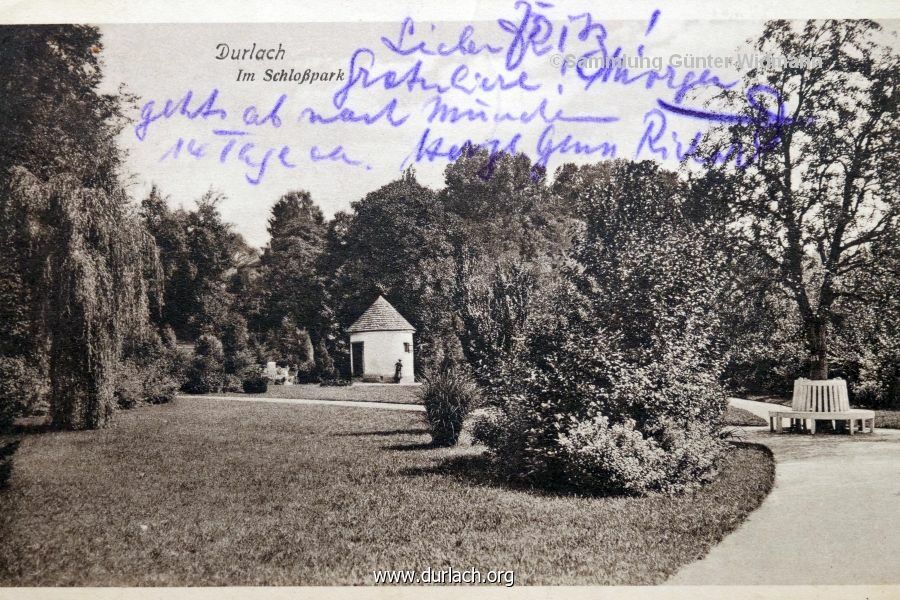 Durlach
Im Schloßpark
Lieber Fritz!
Gratuliere! Morgen
gehts ab nach München
14 Tage ca. Herzl. Gruß Richard
©Sammlung Günter Widmann
www.durlach.org